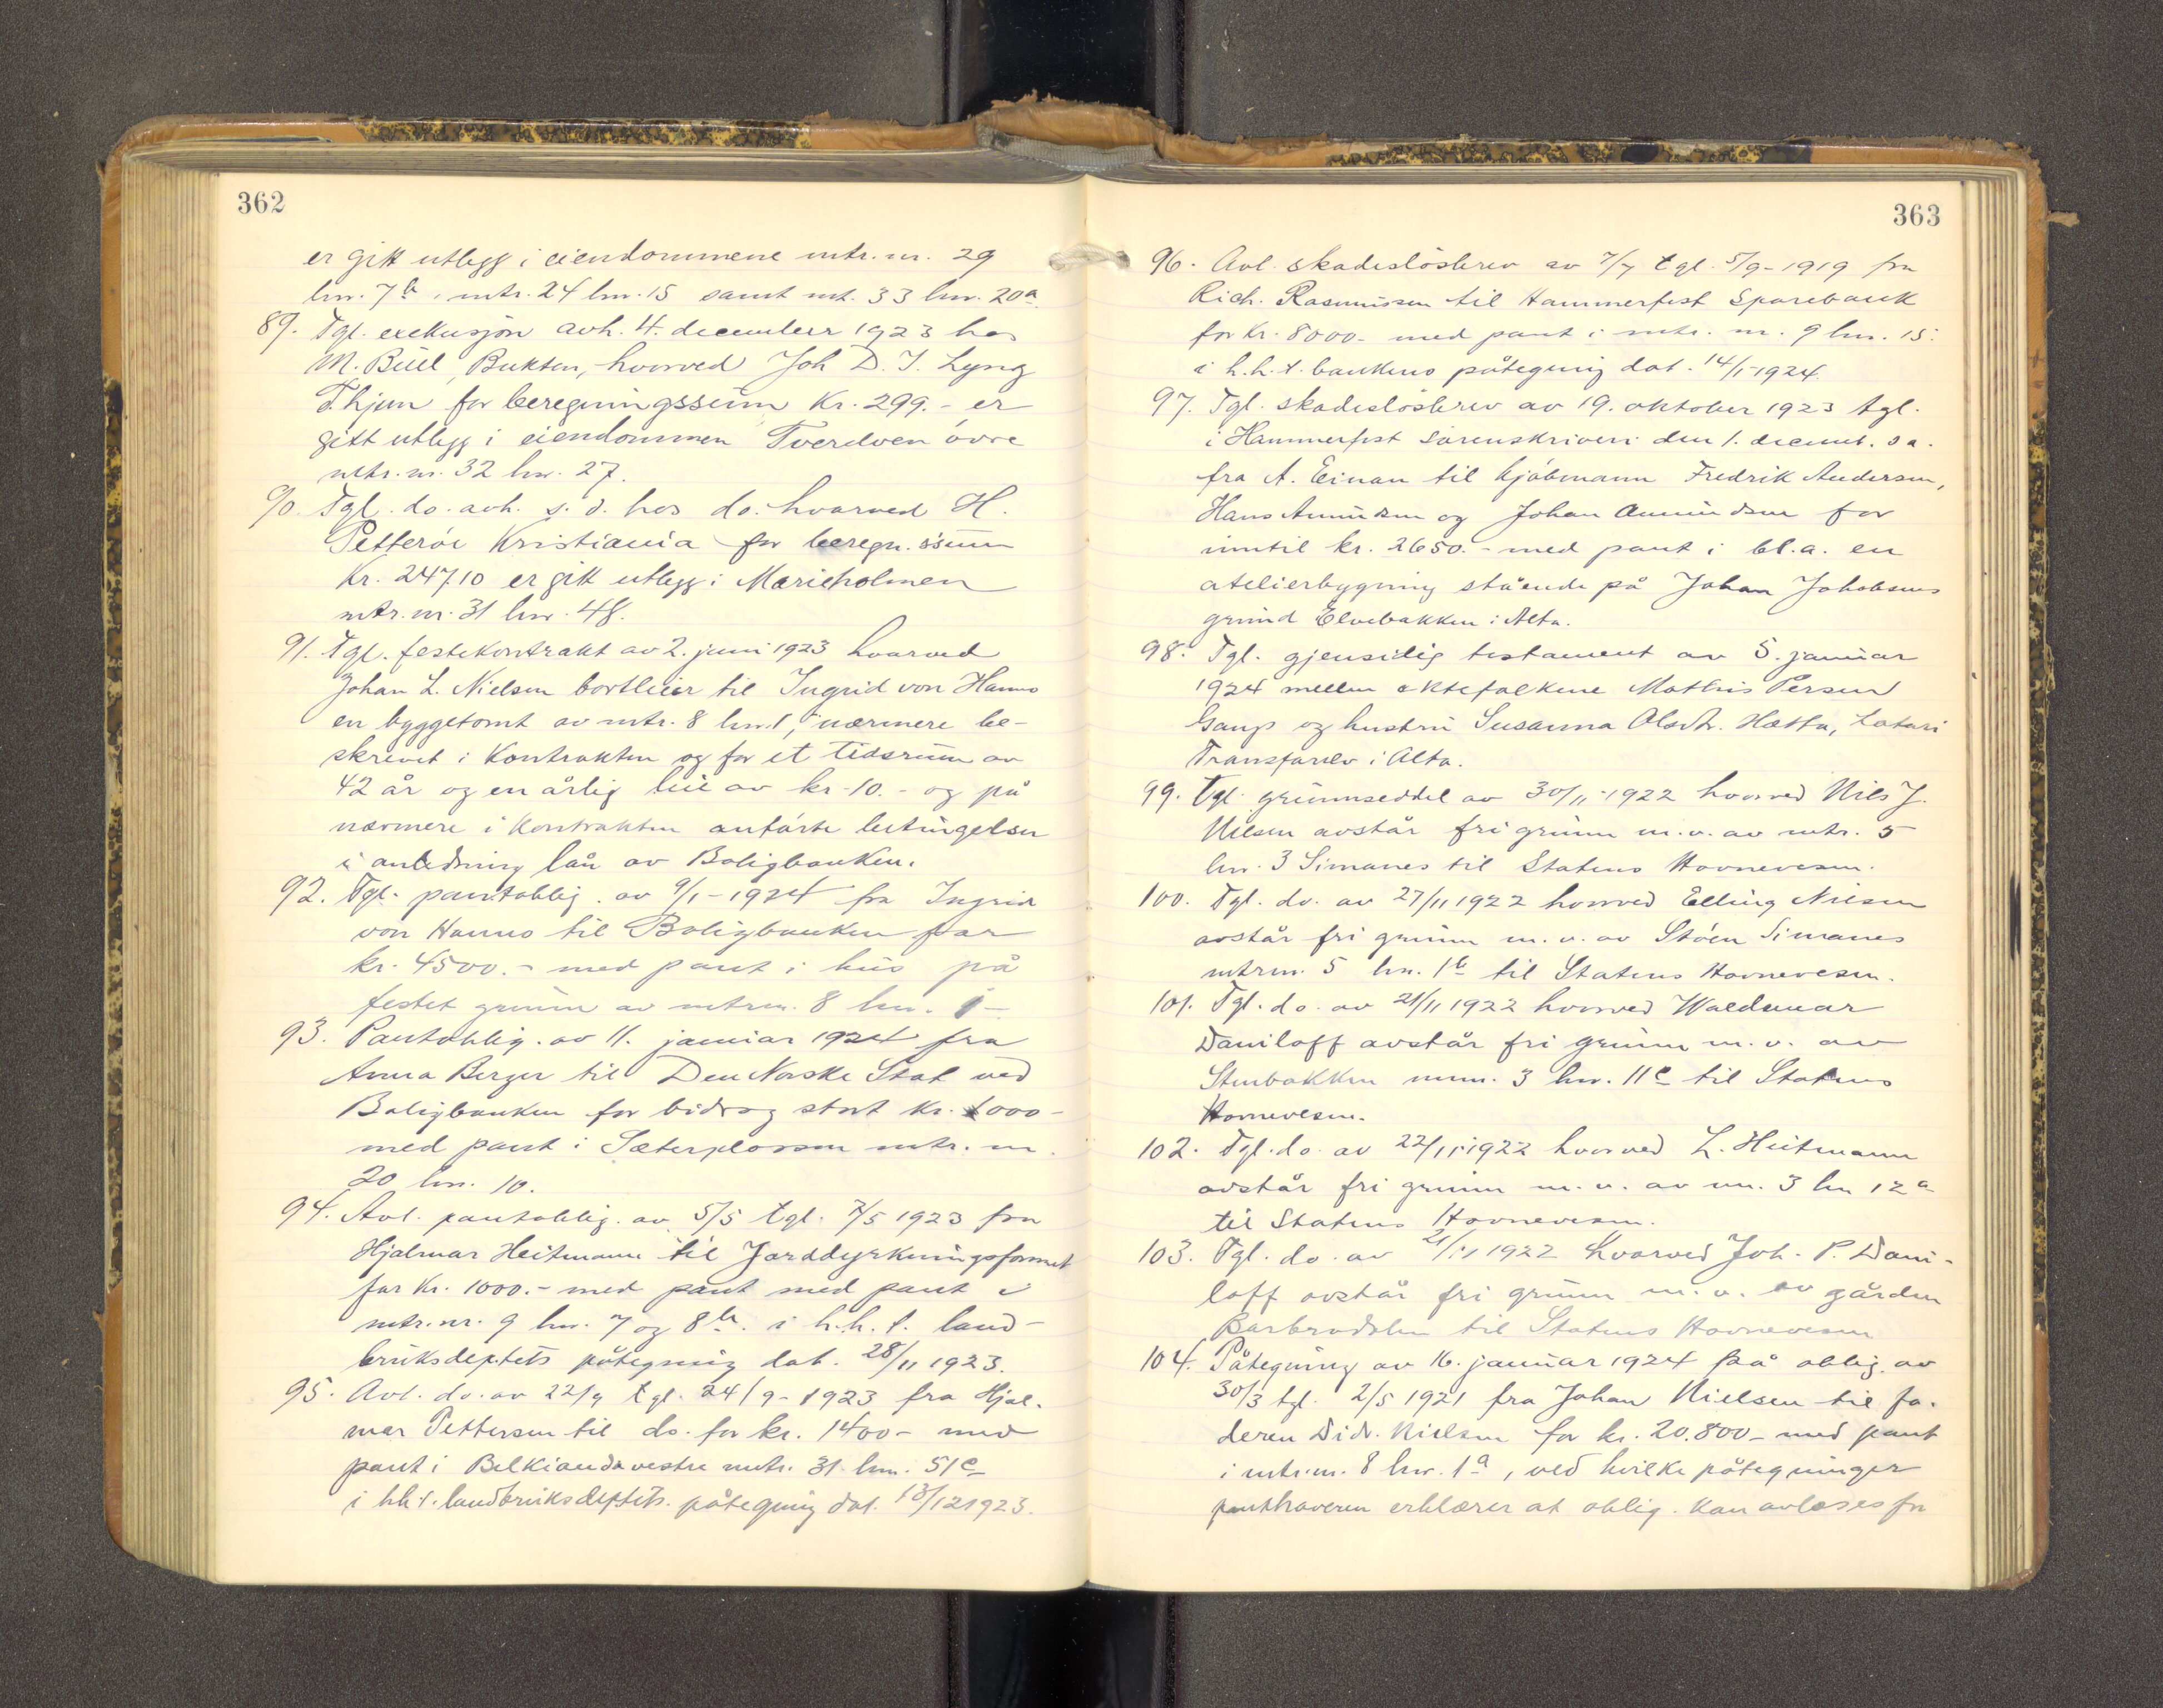 362
er gitt utlegg i eiendommene mtr. nr. 29
lnr. 7b, mtr. 24 lnr. 15 samt mt. 33 lnr. 20a
89. Tgl. exekusjon avh. 4. december 1923 hos
M. Buel, Bukten, hvorved Joh D. I. Lyng
T.hjem for beregningssum Kr. 299.- er
gitt utlegg i eiendommen Tverelven övre
mtr. nr. 32 lnr. 27.
90. Tgl. do. avh. s. d. hos do. hvorved H.
Petterøe Kristiania for beregn. sum
Kr. 247.10 er gitt utlegg i Marieholmen
mtr. nr. 31 lnr. 48.
91. Tgl. festekontrakt av 2. juni 1923 hvorved
Johan L. Nielsen bortleier til Ingrid von Hanno
en byggetomt av mtr. 8 lnr. 1, nærmere be-
skrevet i Kontrakten og for et tidsrum av
42 år og en årlig leie av kr. 10.- og på
nærmere i Kontrakten anförte betingelser
i anledning lån av Boligbanken.
92. Tgl. pantoblig. av 9/1-1924 fra Ingrid
von Hanno til Boligbanken for
kr. 4500.- med pant i hus på
festet grunn av mtrnr. 8 lnr. 1-
93. Pantoblig. av 11. januar 1924 fra
Anna Berger til Den Norske Stat ved
Boligbanken for bidrag stort kr. 1000-
med pant i Sæterplassen mtr. nr.
20 lnr. 10.
94. Avl. pantoblig. av 5/5 tgl. 7/5 1923 fra
Hjalmar Heitmann til Jorddyrkningsfonnet
for Kr. 1000.- med pant med pant i
mtr. nr. 9 lnr. 7 og 8b. i h.h.t. land-
bruksdeptets påtegning dat. 28/11 1923.
95. Avl. do. av 22/9 tgl. 24/9-1923 fra Hjal-
mar Pettersen til do. for kr. 1400- med
pant i Belkiandavestre mtr. 31 lnr. 51c
i hht. landbruksdeptets. påtegning dat. 13/12 1923.
363
96. Avl. skadeslösbrev av 7/7 tgl. 5/9-1919 fra
Rich. Rasmussen til Hammerfest Sparebank
for kr. 8000- med pant i mtr. nr. 9 lnr. 15.
i h.h.t. bankens påtegning dat. 14/1-1924.
97. Tgl. skadeslösbrev av 19. oktober 1923 tgl.
i Hammerfest sorenskriveri den 1. decemb. s.a.
fra A. Einan til kjöbmann Fredrik Andersen,
Hans Amundsen og Johan Amundsen for
inntil kr. 2650.- med pant i bl.a. en
atelierbygning stående på Johan Jakobsens
grund Elvebakken i Alta.
98. Tgl. gjensidig testament av 5. januar
1924 mellem ektefolkene Mathis Persen
Gaup og hustru Susanna Olsdtr. Hætta, Latari
Transfarelv i Alta.
99. Tgl. grunnseddel av 30/11-1922 hvorved Nils J.
Nilsen avstår fri grunn m.v. av mtr. 5
lnr. 3 Simanes til Statens Havnevesen.
100. Tgl. do. av 27/11 1922 hvorved Elling Nilsen
avstår fri grunn m.v. av Stöen Simanes
mtrnr. 5 lnr. 1b til Statens Havnevesen.
101. Tgl. do. av 21/11 1922 hvorved Waldemar
Daniloff avstår fri grunn m.v. av
Stenbakken mnr. 3 lnr. 11c til Statens
Havnevesen.
102. Tgl. do. av 22/11 1922 hvorved L. Heitmann
avstår fri grunn m.v. av mn. 3 ln 12a
til Statens Havnevesen.
103. Tgl. do. av 21/11 1922 hvorved Joh. P. Dani-
loff avstår fri grunn m.v. av gården
Barbrodalen til Statens Havnevesen
104. Påtegning av 16. januar 1924 på oblig. av
30/3 tgl. 2/5 1921 fra Johan Nielsen til fa-
deren Didr. Nielsen for kr. 20.800- med pant
i mtr.nr. 8 lnr. 1a, ved hvilke påtegninger
panthaveren erklærer at oblig. kan avlæses fra